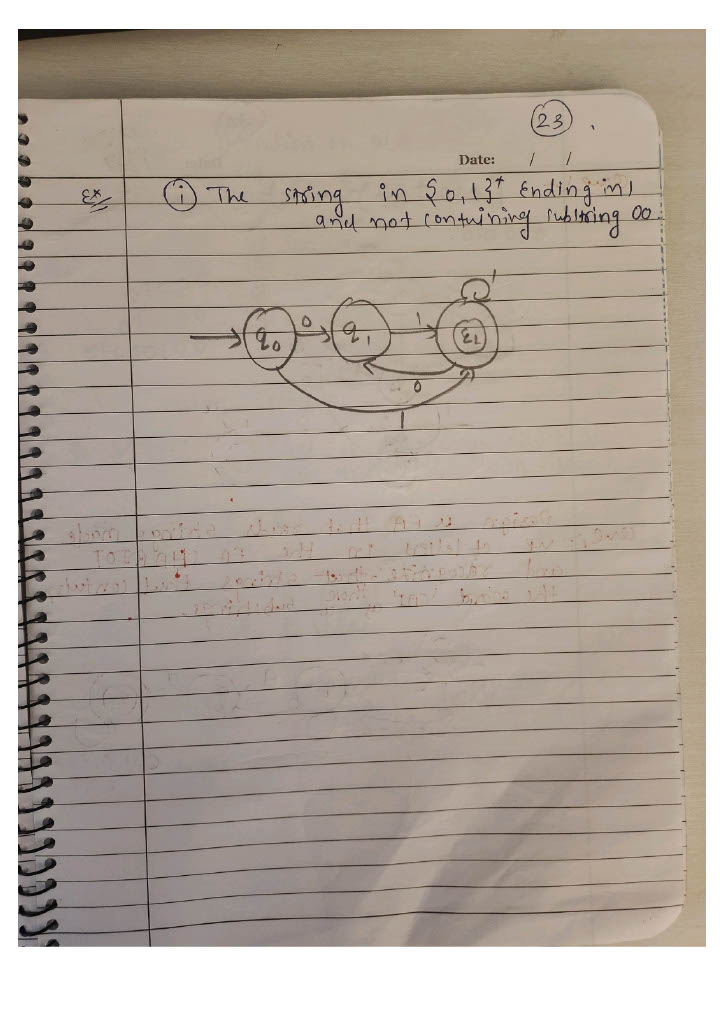 23.
Date: / /
Ex
i The string in {0,1}* Ending in 1
and not containing substring 00.
1
q0 0 q1 1 q2
0
1